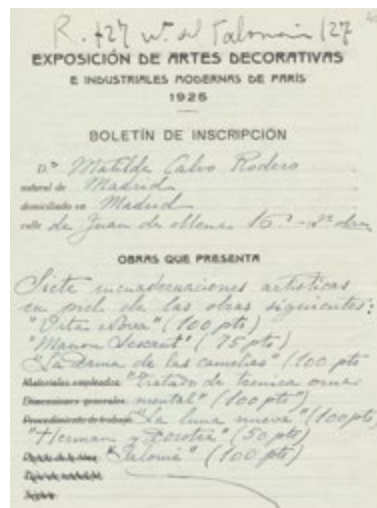 R. 427 nº del Talonario 127
EXPOSICIÓN DE ARTES DECORATIVAS
E INDUSTRIALES MODERNAS DE PARÍS
1925
BOLETÍN DE INSCRIPCIÓN
D.ª Matilde Calvo Rodero
natural de Madrid
domiciliado en Madrid
calle de Juan de Mena 16
OBRAS QUE PRESENTA
Siete encuadernaciones artísticas
en piel de las obras siguientes:
"Vita Nova" (100 pts)
"Manon Lescaut" (75 pts)
"La dama de las camelias" (100 pts
Materiales empleados "Tratado de técnica orna-
Dimensiones generales mental" (100 pts")
Procedimiento de trabajo "La luna nueva" (100 pts)
"Herman y Dorotea" (50 pts)
"Salomé" (100 pts)